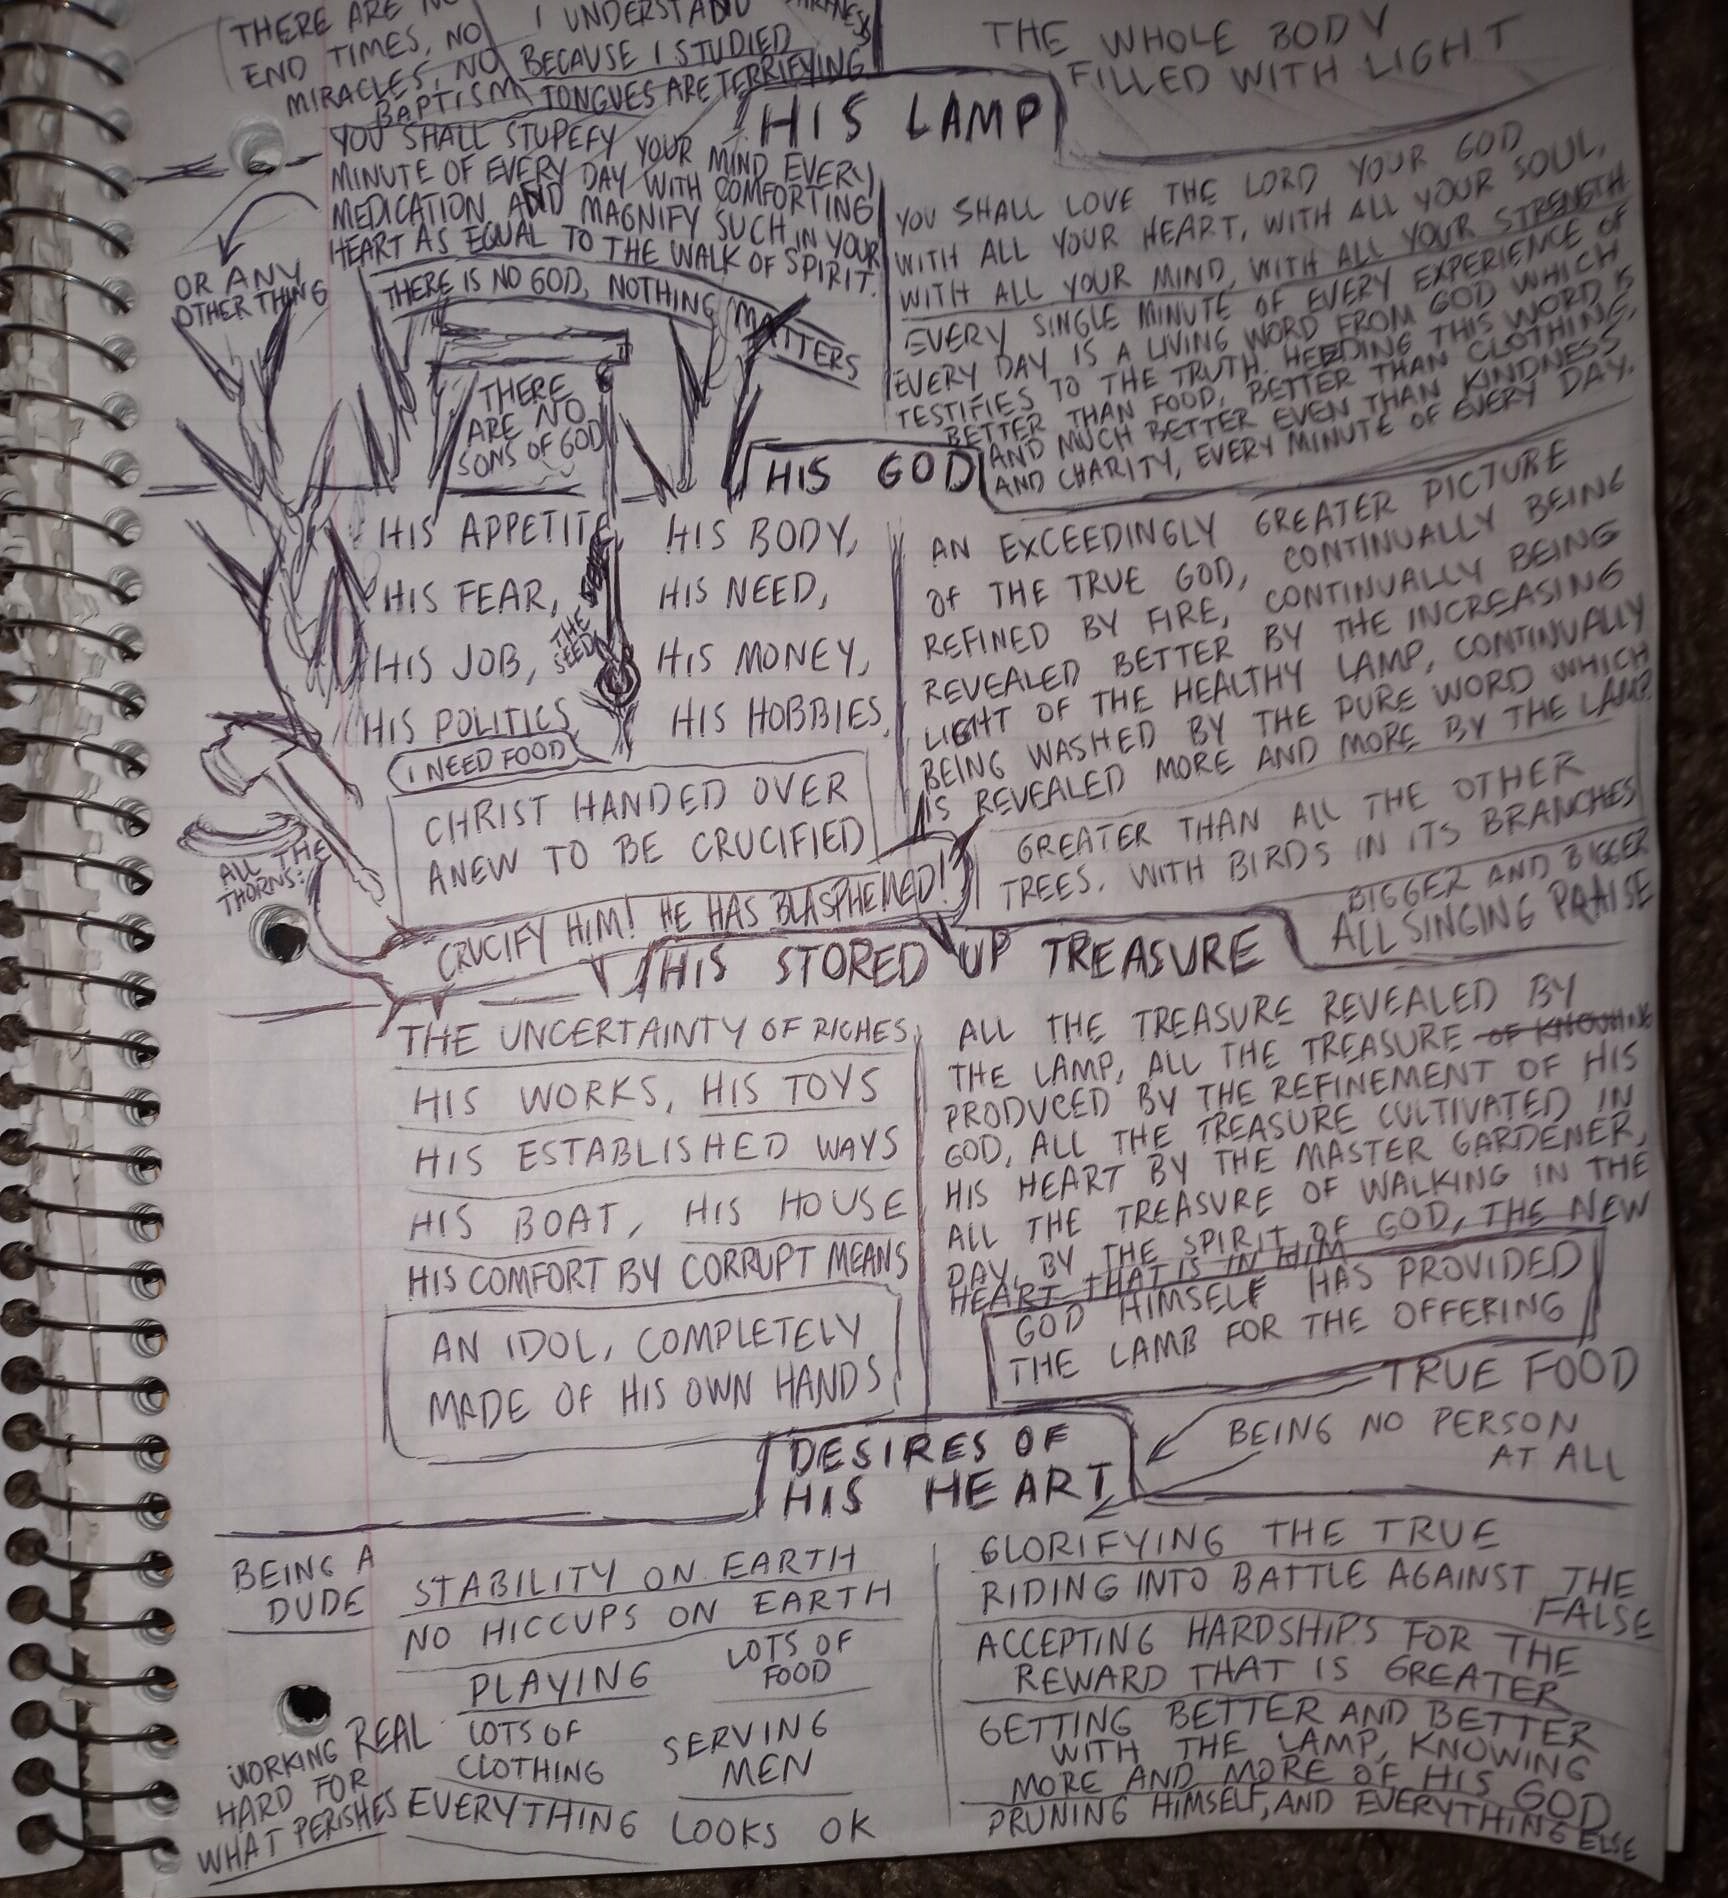 THERE ARE NO
END TIMES, NO
MIRACLES, NO
BAPTISM
I UNDERSTAND
BECAUSE I STUDIED
TONGUES ARE TERRIFYING
THE WHOLE BODY
FILLED WITH LIGHT
HIS LAMP
YOU SHALL STUPEFY YOUR MIND EVERY
MINUTE OF EVERY DAY WITH COMFORTING
MEDICATION AND MAGNIFY SUCH IN YOUR
HEART AS EQUAL TO THE WALK OF SPIRIT.
OR ANY
OTHER THING
THERE IS NO GOD, NOTHING MATTERS
THERE
ARE NO
SONS OF GOD
YOU SHALL LOVE THE LORD YOUR GOD
WITH ALL YOUR HEART, WITH ALL YOUR SOUL,
WITH ALL YOUR MIND, WITH ALL YOUR STRENGTH
EVERY SINGLE MINUTE OF EVERY EXPERIENCE OF
EVERY DAY IS A LIVING WORD FROM GOD WHICH
TESTIFIES TO THE TRUTH. HEEDING THIS WORD IS
BETTER THAN FOOD, BETTER THAN CLOTHING,
AND MUCH BETTER EVEN THAN KINDNESS
AND CHARITY, EVERY MINUTE OF EVERY DAY.
HIS GOD
HIS APPETITE, HIS BODY,
HIS FEAR, HIS NEED,
HIS JOB, HIS MONEY,
HIS POLITICS HIS HOBBIES,
THE
SEED
I NEED FOOD
CHRIST HANDED OVER
ANEW TO BE CRUCIFIED
ALL THE
THORNS:
CRUCIFY HIM! HE HAS BLASPHEMED!
AN EXCEEDINGLY GREATER PICTURE
OF THE TRUE GOD, CONTINUALLY BEING
REFINED BY FIRE, CONTINUALLY BEING
REVEALED BETTER BY THE INCREASING
LIGHT OF THE HEALTHY LAMP, CONTINUALLY
BEING WASHED BY THE PURE WORD WHICH
IS REVEALED MORE AND MORE BY THE LAMP.
GREATER THAN ALL THE OTHER
TREES. WITH BIRDS IN ITS BRANCHES
BIGGER AND BIGGER
ALL SINGING PRAISE
HIS STORED UP TREASURE
THE UNCERTAINTY OF RICHES,
HIS WORKS, HIS TOYS
HIS ESTABLISHED WAYS
HIS BOAT, HIS HOUSE
HIS COMFORT BY CORRUPT MEANS
AN IDOL, COMPLETELY
MADE OF HIS OWN HANDS
ALL THE TREASURE REVEALED BY
THE LAMP, ALL THE TREASURE OF KNOWING
PRODUCED BY THE REFINEMENT OF HIS
GOD, ALL THE TREASURE CULTIVATED IN
HIS HEART BY THE MASTER GARDENER,
ALL THE TREASURE OF WALKING IN THE
DAY, BY THE SPIRIT OF GOD, THE NEW
HEART THAT IS IN HIM
GOD HIMSELF HAS PROVIDED
THE LAMB FOR THE OFFERING
TRUE FOOD
DESIRES OF
HIS HEART
BEING NO PERSON
AT ALL
BEING A
DUDE
STABILITY ON EARTH
NO HICCUPS ON EARTH
PLAYING
LOTS OF
FOOD
REAL
LOTS OF
CLOTHING
SERVING
MEN
WORKING
HARD FOR
WHAT PERISHES
EVERYTHING LOOKS OK
GLORIFYING THE TRUE
RIDING INTO BATTLE AGAINST THE
FALSE
ACCEPTING HARDSHIPS FOR THE
REWARD THAT IS GREATER
GETTING BETTER AND BETTER
WITH THE LAMP, KNOWING
MORE AND MORE OF HIS GOD
PRUNING HIMSELF, AND EVERYTHING ELSE